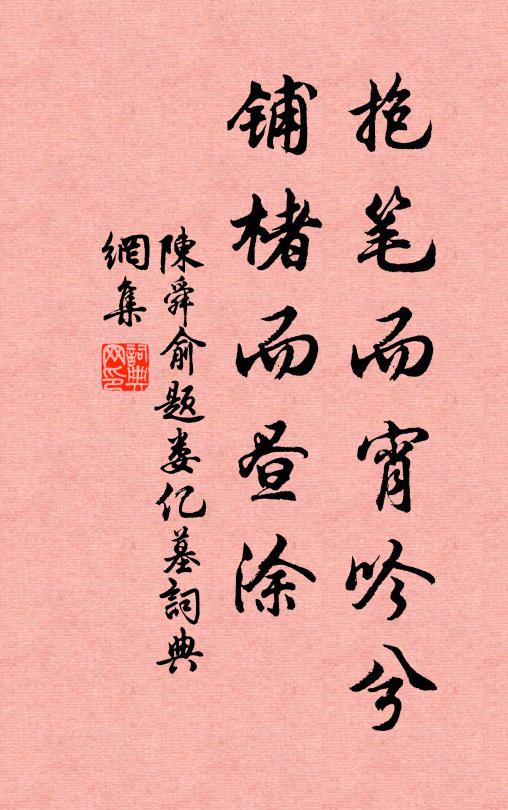 抱笔而宵吟兮
铺楮而昼涂
陳舜俞题娄亿墓詞典
網集
詞典
网印